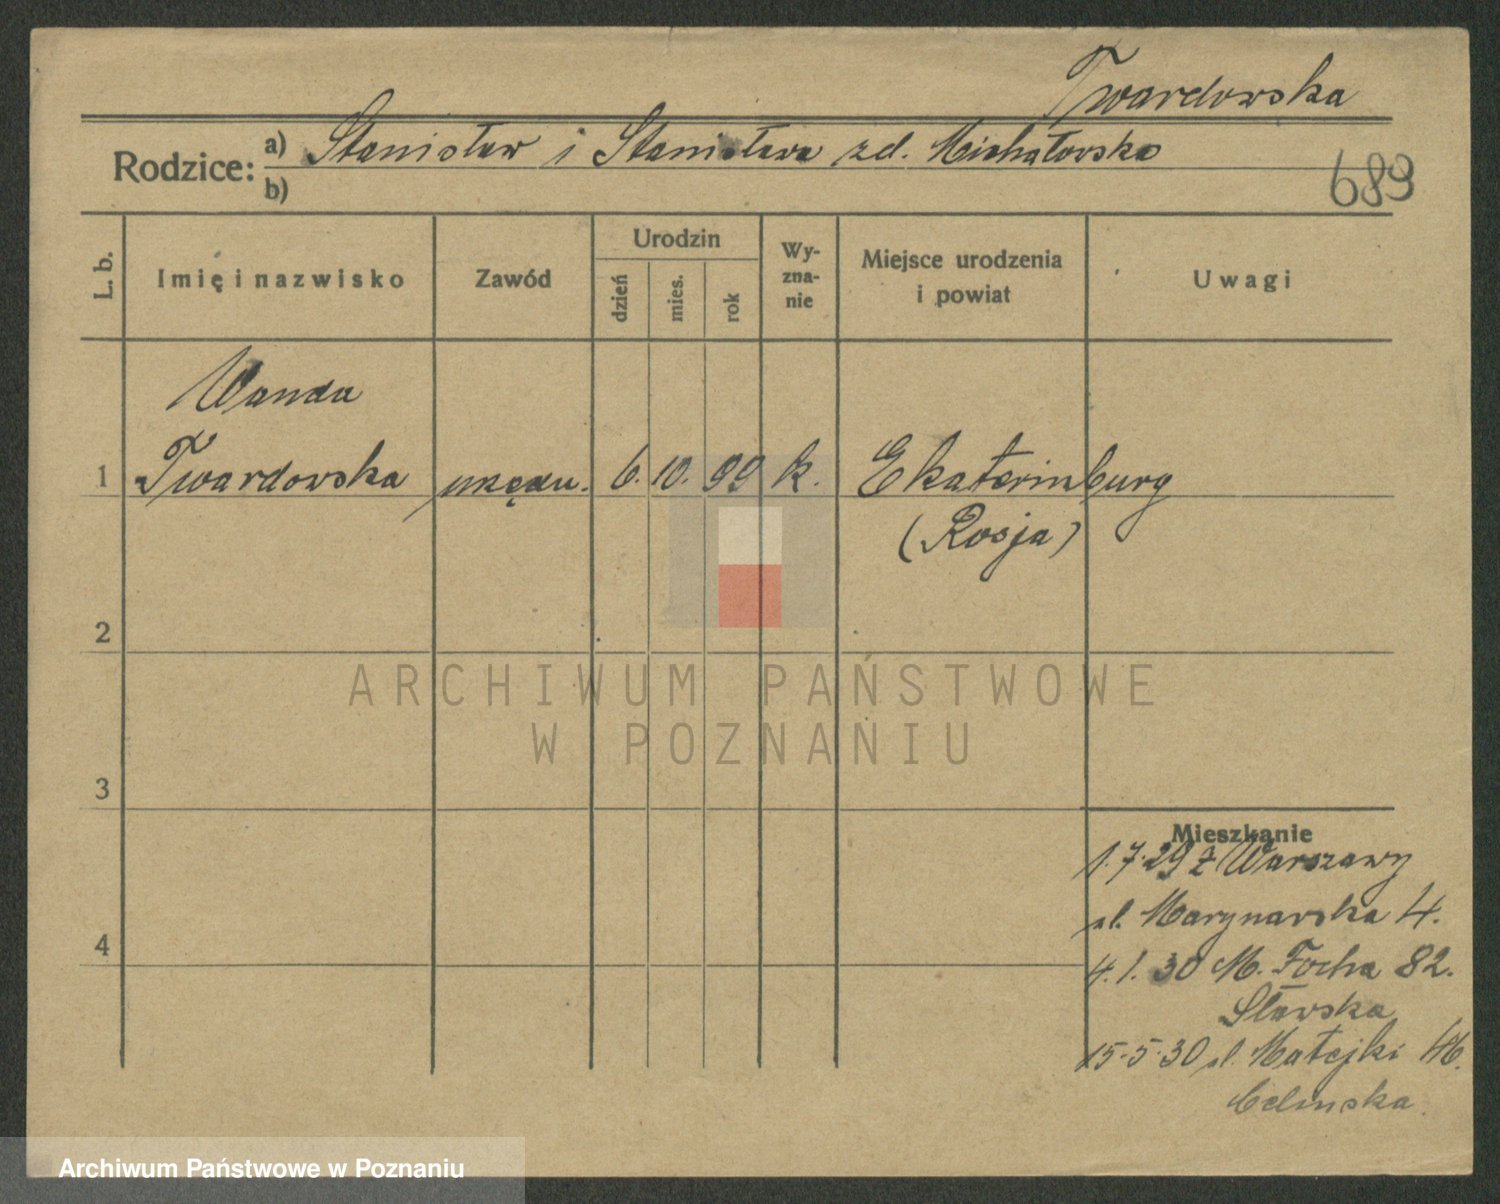 Twardowska
Rodzice: a) Stanisław i Stanisława zd. Michałowska
b)
689
L. b.
Imię i nazwisko
Zawód
Urodzin
dzień
mies.
rok
Wy-
zna-
nie
Miejsce urodzenia
i powiat
Uwagi
Wanda
1 Twardowska urzędn. 6. 10. 99 k. Ekaterinburg
(Rosja)
2
3
4
Mieszkanie
1.7.29 z Warszawy
ul. Marynarska 4.
4.1.30 M. Focha 82.
Sławska
15.5.30 ul. Matejki 46.
Celinska
ARCHIWUM PAŃSTWOWE
W POZNANIU
Archiwum Państwowe w Poznaniu